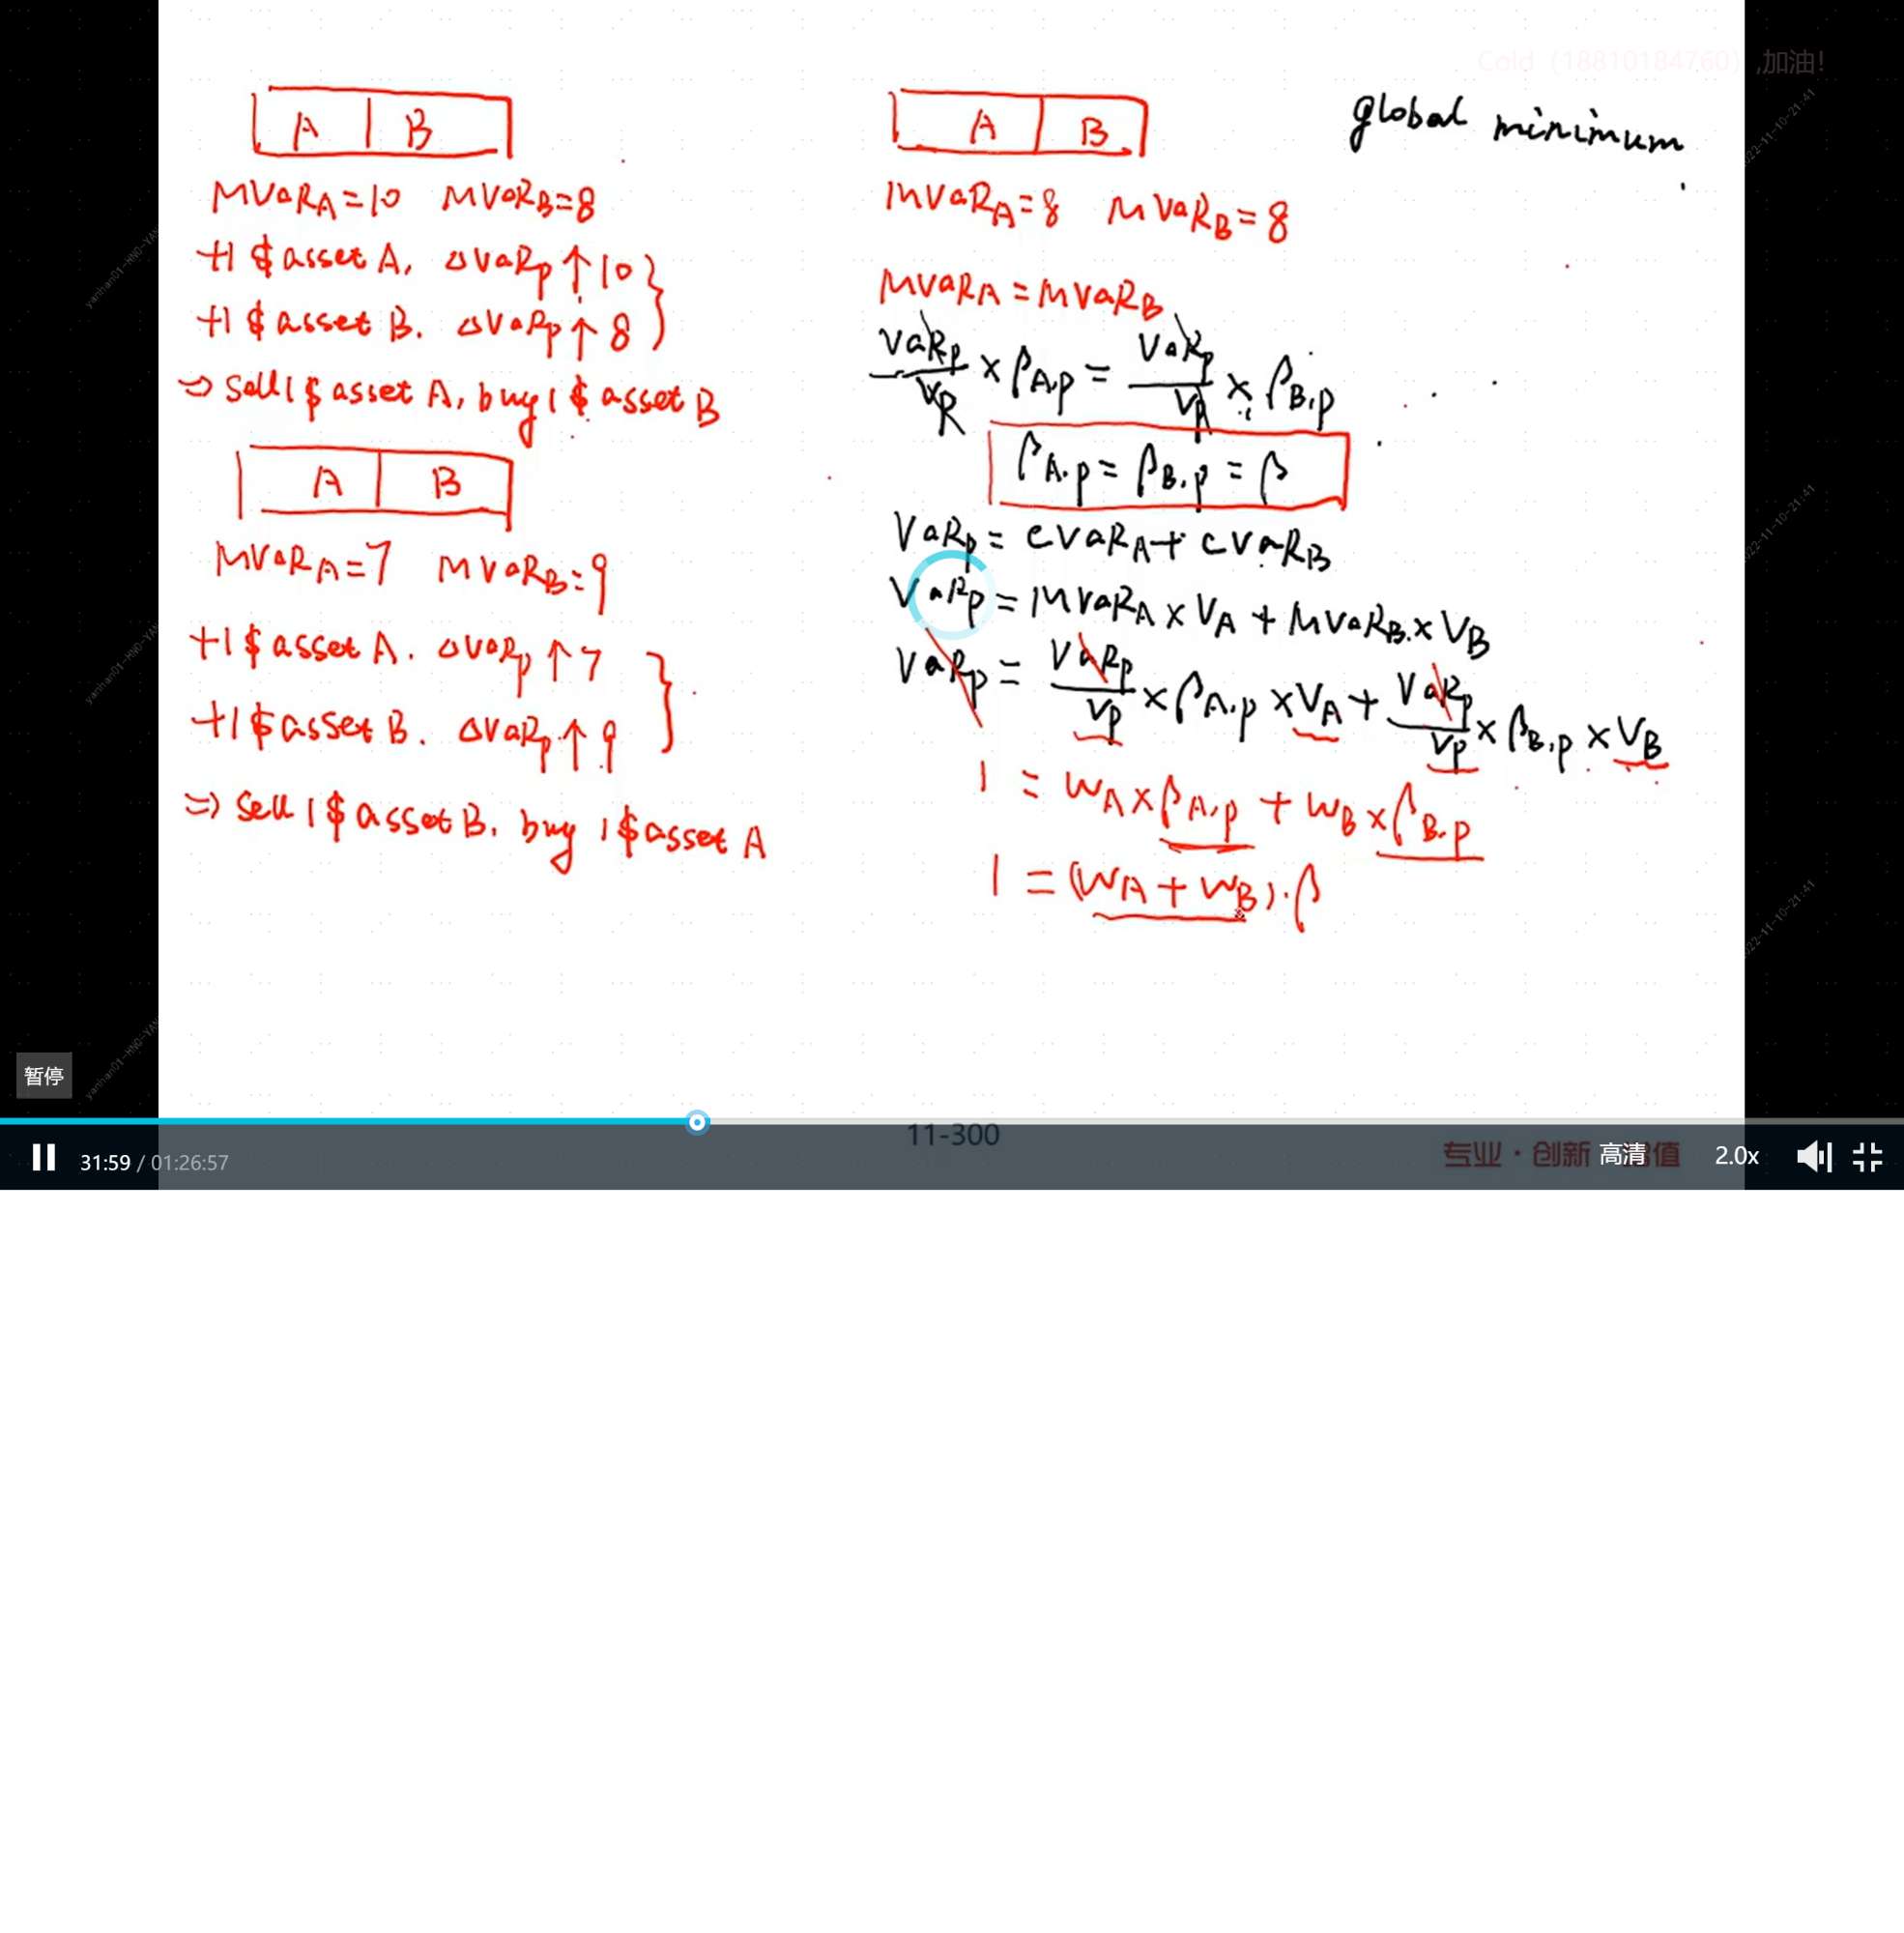 Cold (18810184760) ,加油!
A B
MVaRA=10 MVaRB=8
+1 $ asset A, ΔVaRp ↑ 10
+1 $ asset B. ΔVaRp ↑ 8
⇒ Sell 1 $ asset A, buy 1 $ asset B
A B
MVaRA=7 MVaRB=9
+1 $ asset A. ΔVaRp ↑ 7
+1 $ asset B. ΔVaRp ↑ 9
⇒ Sell 1 $ asset B, buy 1 $ asset A
A B
MVaRA=8 MVaRB=8
MVaRA = MVaRB
VaRp/VP × βA,p = VaRp/Vp × βB,p
βA,p = βB,p = β
VaRp = CVaRA + CVaRB
VaRp = MVaRA × VA + MVaRB × VB
VaRp = VaRp/Vp × βA,p × VA + VaRp/Vp × βB,p × VB
1 = WA × βA,p + WB × βB,p
1 = (WA + WB) · β
global minimum
暂停
11-300
31:59 / 01:26:57
专业·创新
高清
值
2.0x